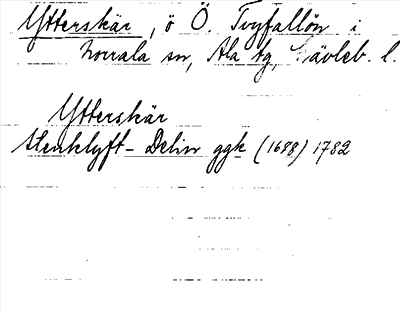 Ytterskär, ö Ö. Tvyfallön i
Norrala sn, Ala tg, Gävleb. l.
Ytterskär
Stenklyft - Delin ggk (1688) 1782